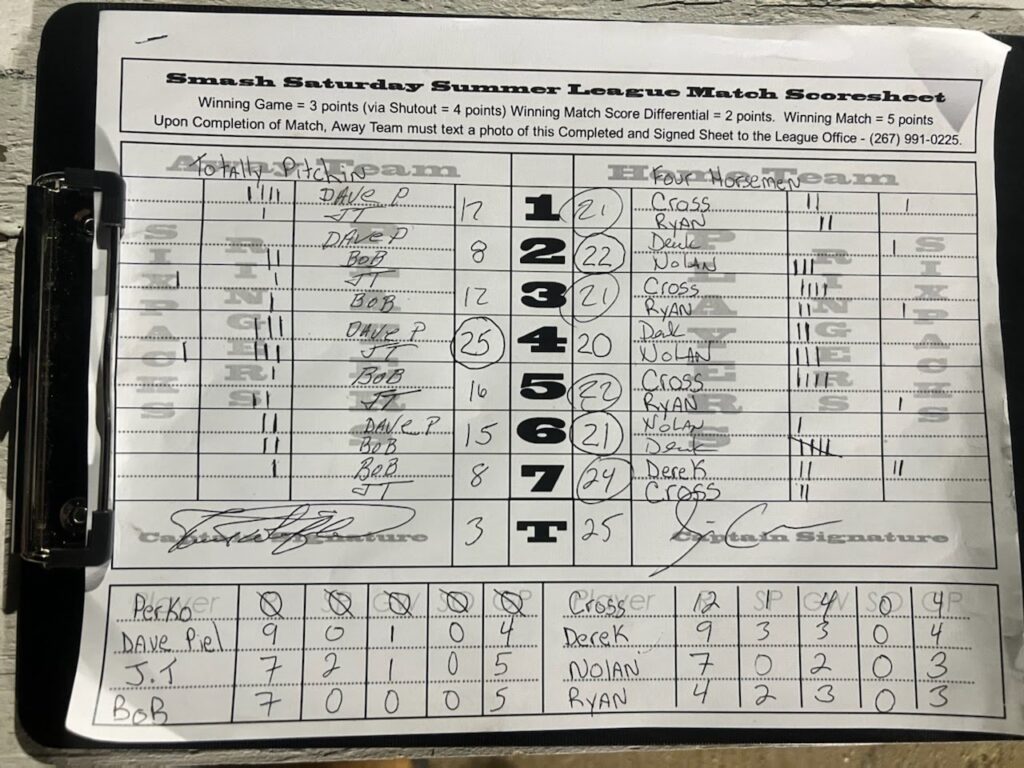 Smash Saturday Summer League Match Scoresheet
Winning Game = 3 points (via Shutout = 4 points) Winning Match Score Differential = 2 points. Winning Match = 5 points
Upon Completion of Match, Away Team must text a photo of this Completed and Signed Sheet to the League Office - (267) 991-0225.
Away Team Home Team
Totally Pitchin Four Horsemen
SIXPACKS RINGERS PLAYERS RINGERS SIXPACKS
DAVE P 17 1 21 Cross
JT RYAN
DAVE P 8 2 22 Derek
BOB NOLAN
JT 12 3 21 Cross
BOB RYAN
DAVE P 25 4 20
JT NOLAN
BOB 16 5 22 Cross
JT RYAN
DAVE P 15 6 21 NOLAN
BOB Derek
BOB 8 7 24 Derek
JT Cross
Captain Signature 3 T 25 Captain Signature
Player R SP GW SO GP Player R SP GW SO GP
Perko 0 0 0 0 0 Cross 12 1 4 0 4
DAVE Piel 9 0 1 0 4 Derek 9 3 3 0 4
J.T 7 2 1 0 5 NOLAN 7 0 2 0 3
BOB 7 0 0 0 5 RYAN 4 2 3 0 3